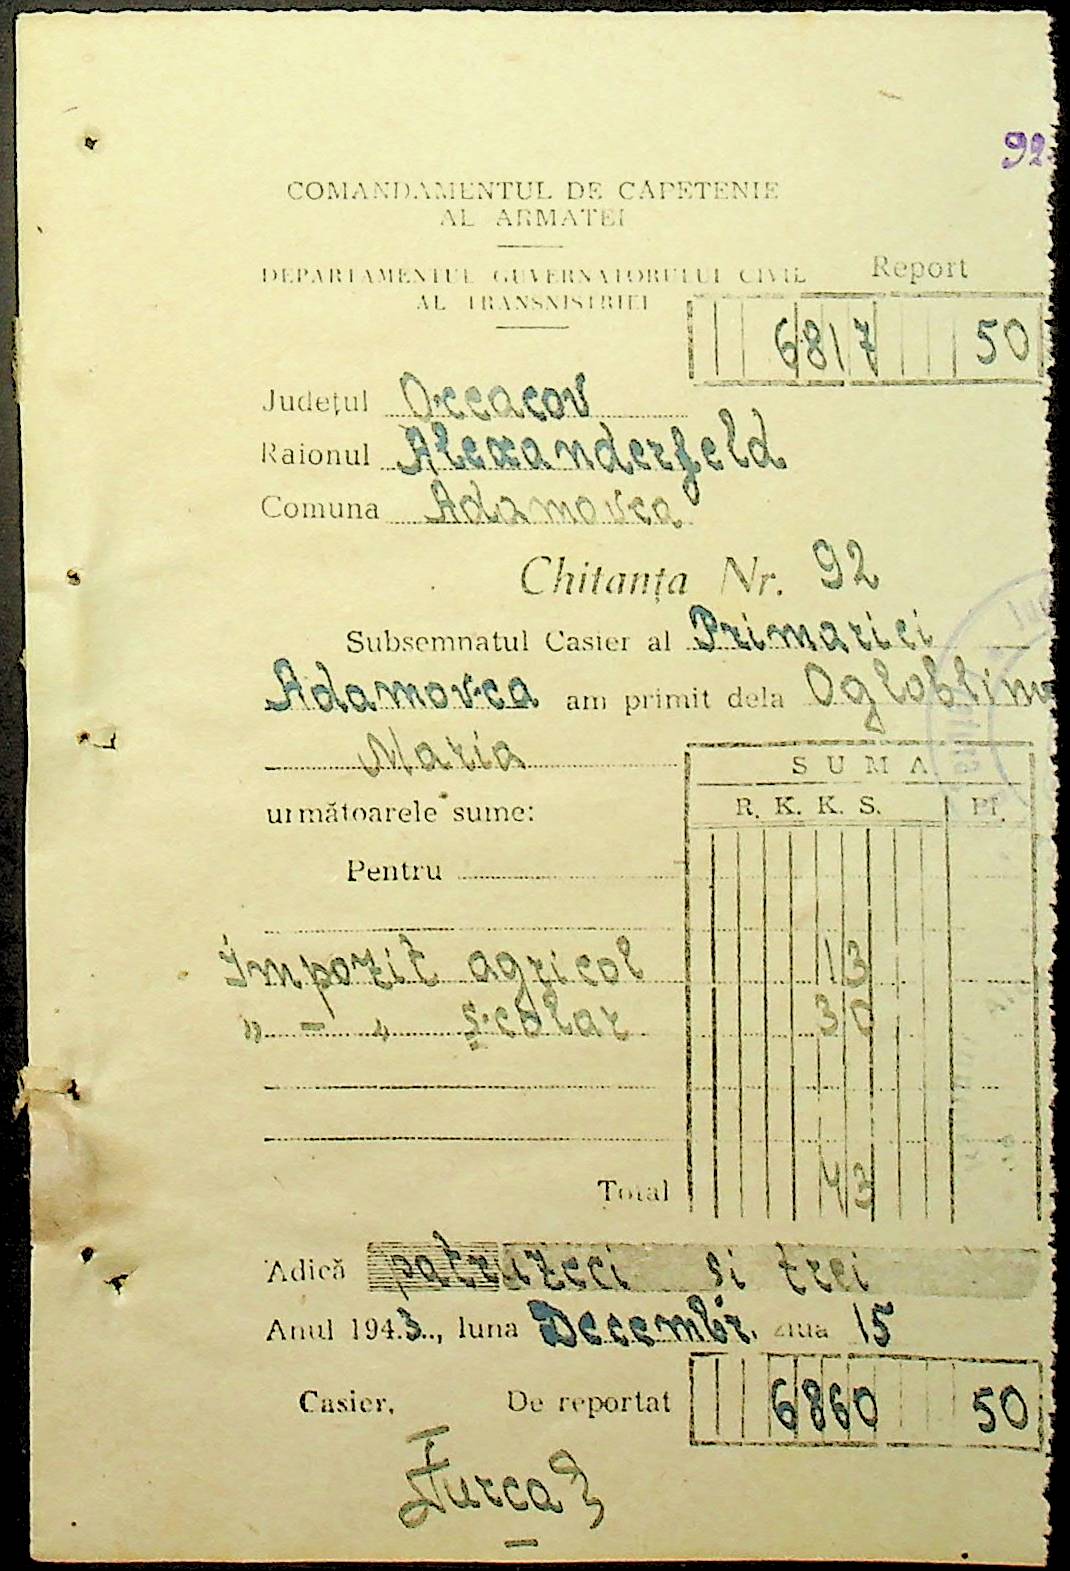 92.
COMANDAMENTUL DE CĂPETENIE
AL ARMATEI
DEPARTAMENTUL GUVERNATORULUI CIVIL
AL TRANSNISTRIEI
Report
6817 50
Judeţul Occacov
Raionul Alexanderfeld
Comuna Adamovca
Chitanţa Nr. 92
Subsemnatul Casier al Primariei
Adamovca am primit dela Ogloblina
Maria
următoarele sume:
SUMA
R. K. K. S. Pf.
Pentru
Impozit agricol 13
" — " şcolar 30
Total 43
Adică patruzeci si trei
Anul 1943.., luna Decembr. ziua 15
Casier,
De reportat 6860 50